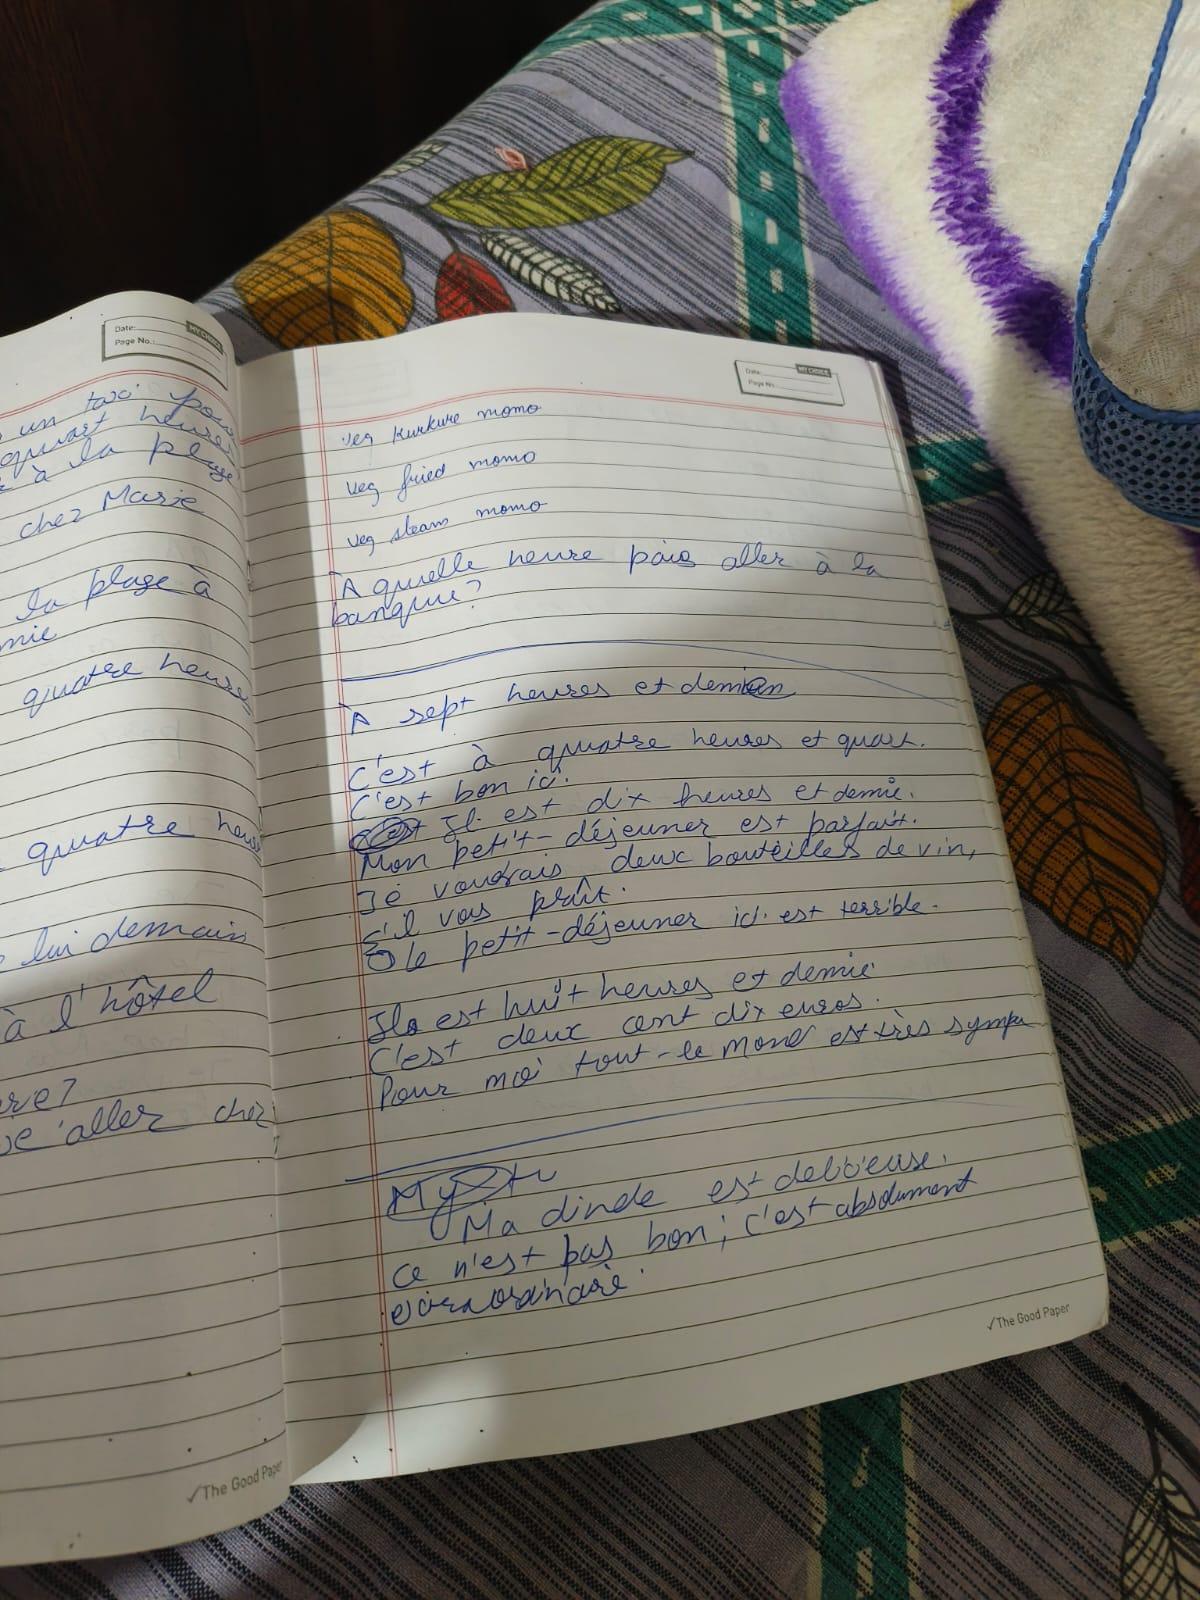 Date:
Page No.:
MY CHOICE
un taxi pou
quart heures
à la plage
chez Marie
la plage à
mie
quatre heures
quatre heu
lui demain
à l'hôtel
ve?
aller chez
✓The Good Paper
Date:
Page No.
MY CHOICE
veg kurkure momo
veg fried momo
veg steam momo
À quelle heure pais aller à la
banque?
À sept heures et demi
C'est à quatre heures et quart.
C'est bon ici.
Il est dix heures et demie.
Mon petit-déjeuner est parfait.
Je voudrais deux bouteilles de vin,
s'il vas plaît.
le petit-déjeuner ici est terrible.
Il est huit heures et demie
C'est deux cent dix euros.
Pour moi tout-le mond est très sympa
Ma dinde est delicieuse.
Ce n'est pas bon; c'est absolument
✓The Good Paper